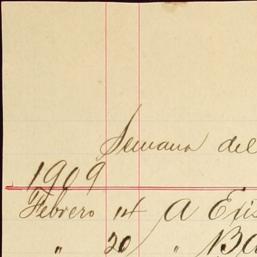 Semana del
1909
Febrero 14 A Exis
" 20 " Ba